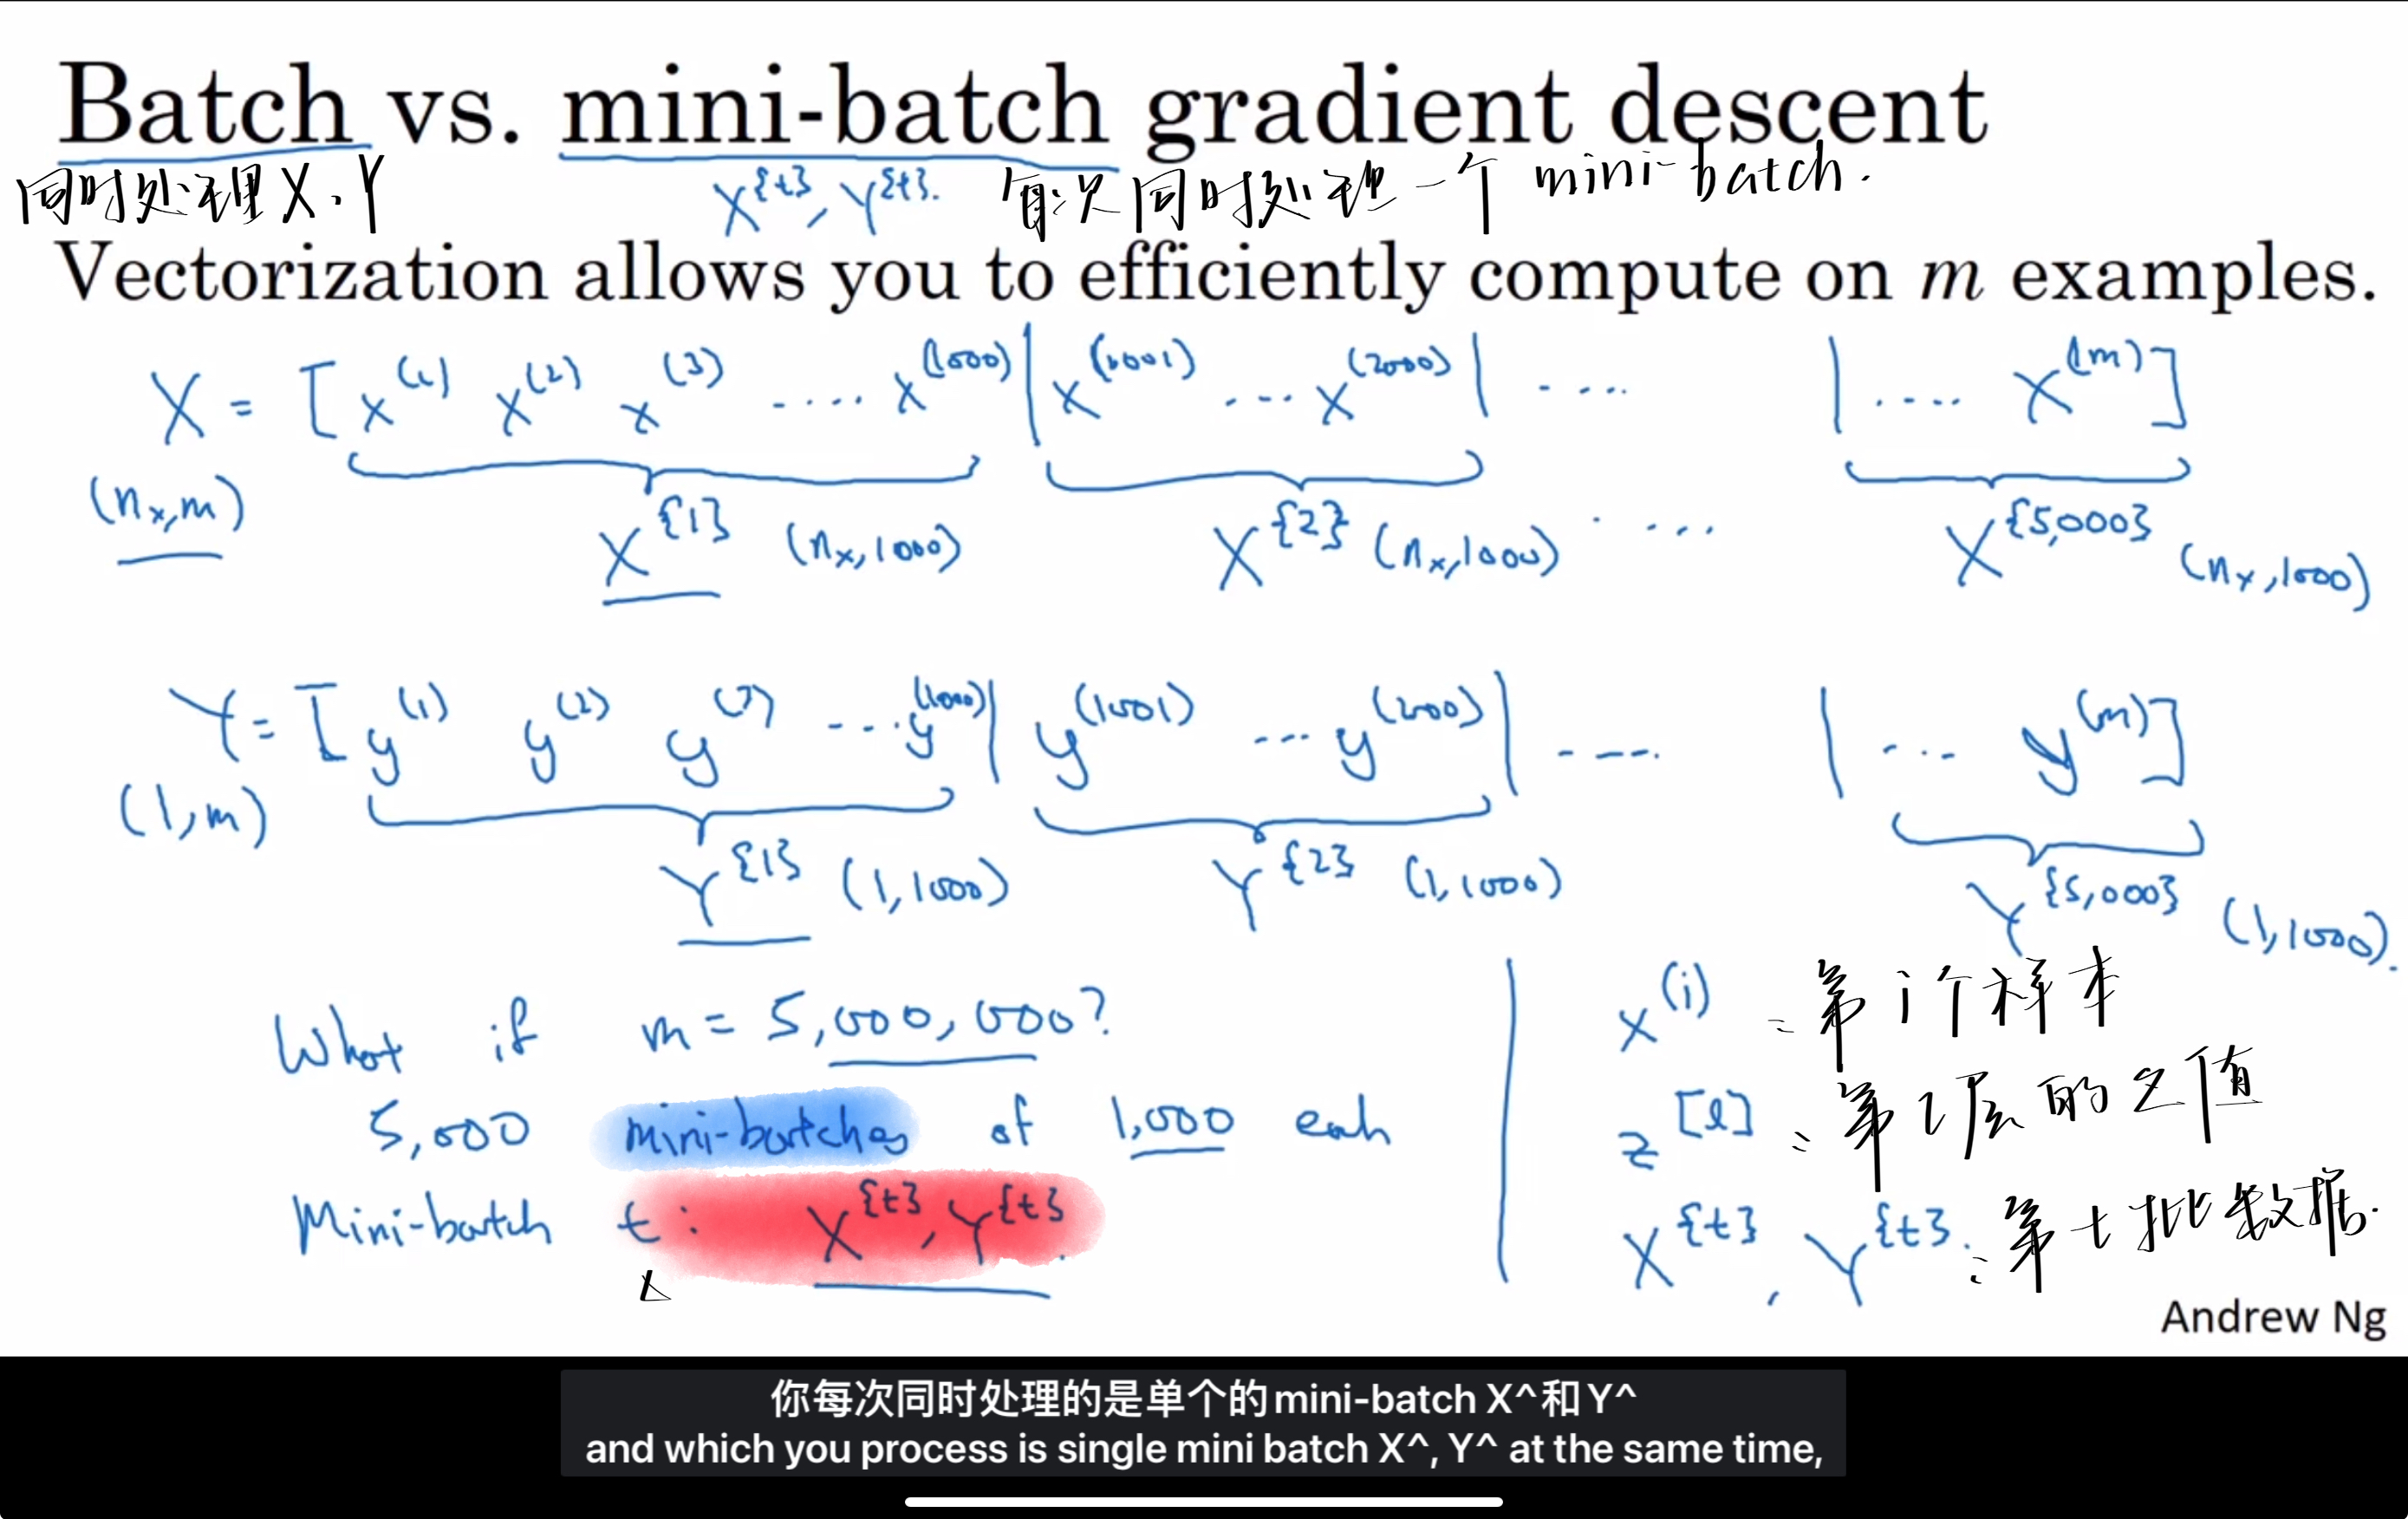 Batch vs. mini-batch gradient descent
同时处理X.Y X^{t}, Y^{t}. 每次同时处理一个 mini-batch.
Vectorization allows you to efficiently compute on m examples.
X = [x^(1) x^(2) x^(3) ..... x^(1000) | x^(1001) ... x^(2000) | ..... | .... x^(m)]
(n_x,m) X^{1} (n_x,1000) X^{2} (n_x,1000) .... X^{5,000} (n_x,1000)
Y = [y^(1) y^(2) y^(3) ... y^(1000) | y^(1001) ... y^(2000) | ---. | ... y^(m)]
(1,m) Y^{1} (1,1000) Y^{2} (1,1000) Y^{5,000} (1,1000).
What if m = 5,000,000?
5,000 mini-batches of 1,000 each
Mini-batch t: X^{t}, Y^{t}.
x^(i) : 第i个样本
z^[l] : 第l层的Z值
X^{t}, Y^{t}. : 第t批数据.
Andrew Ng
你每次同时处理的是单个的mini-batch X^和Y^
and which you process is single mini batch X^, Y^ at the same time,